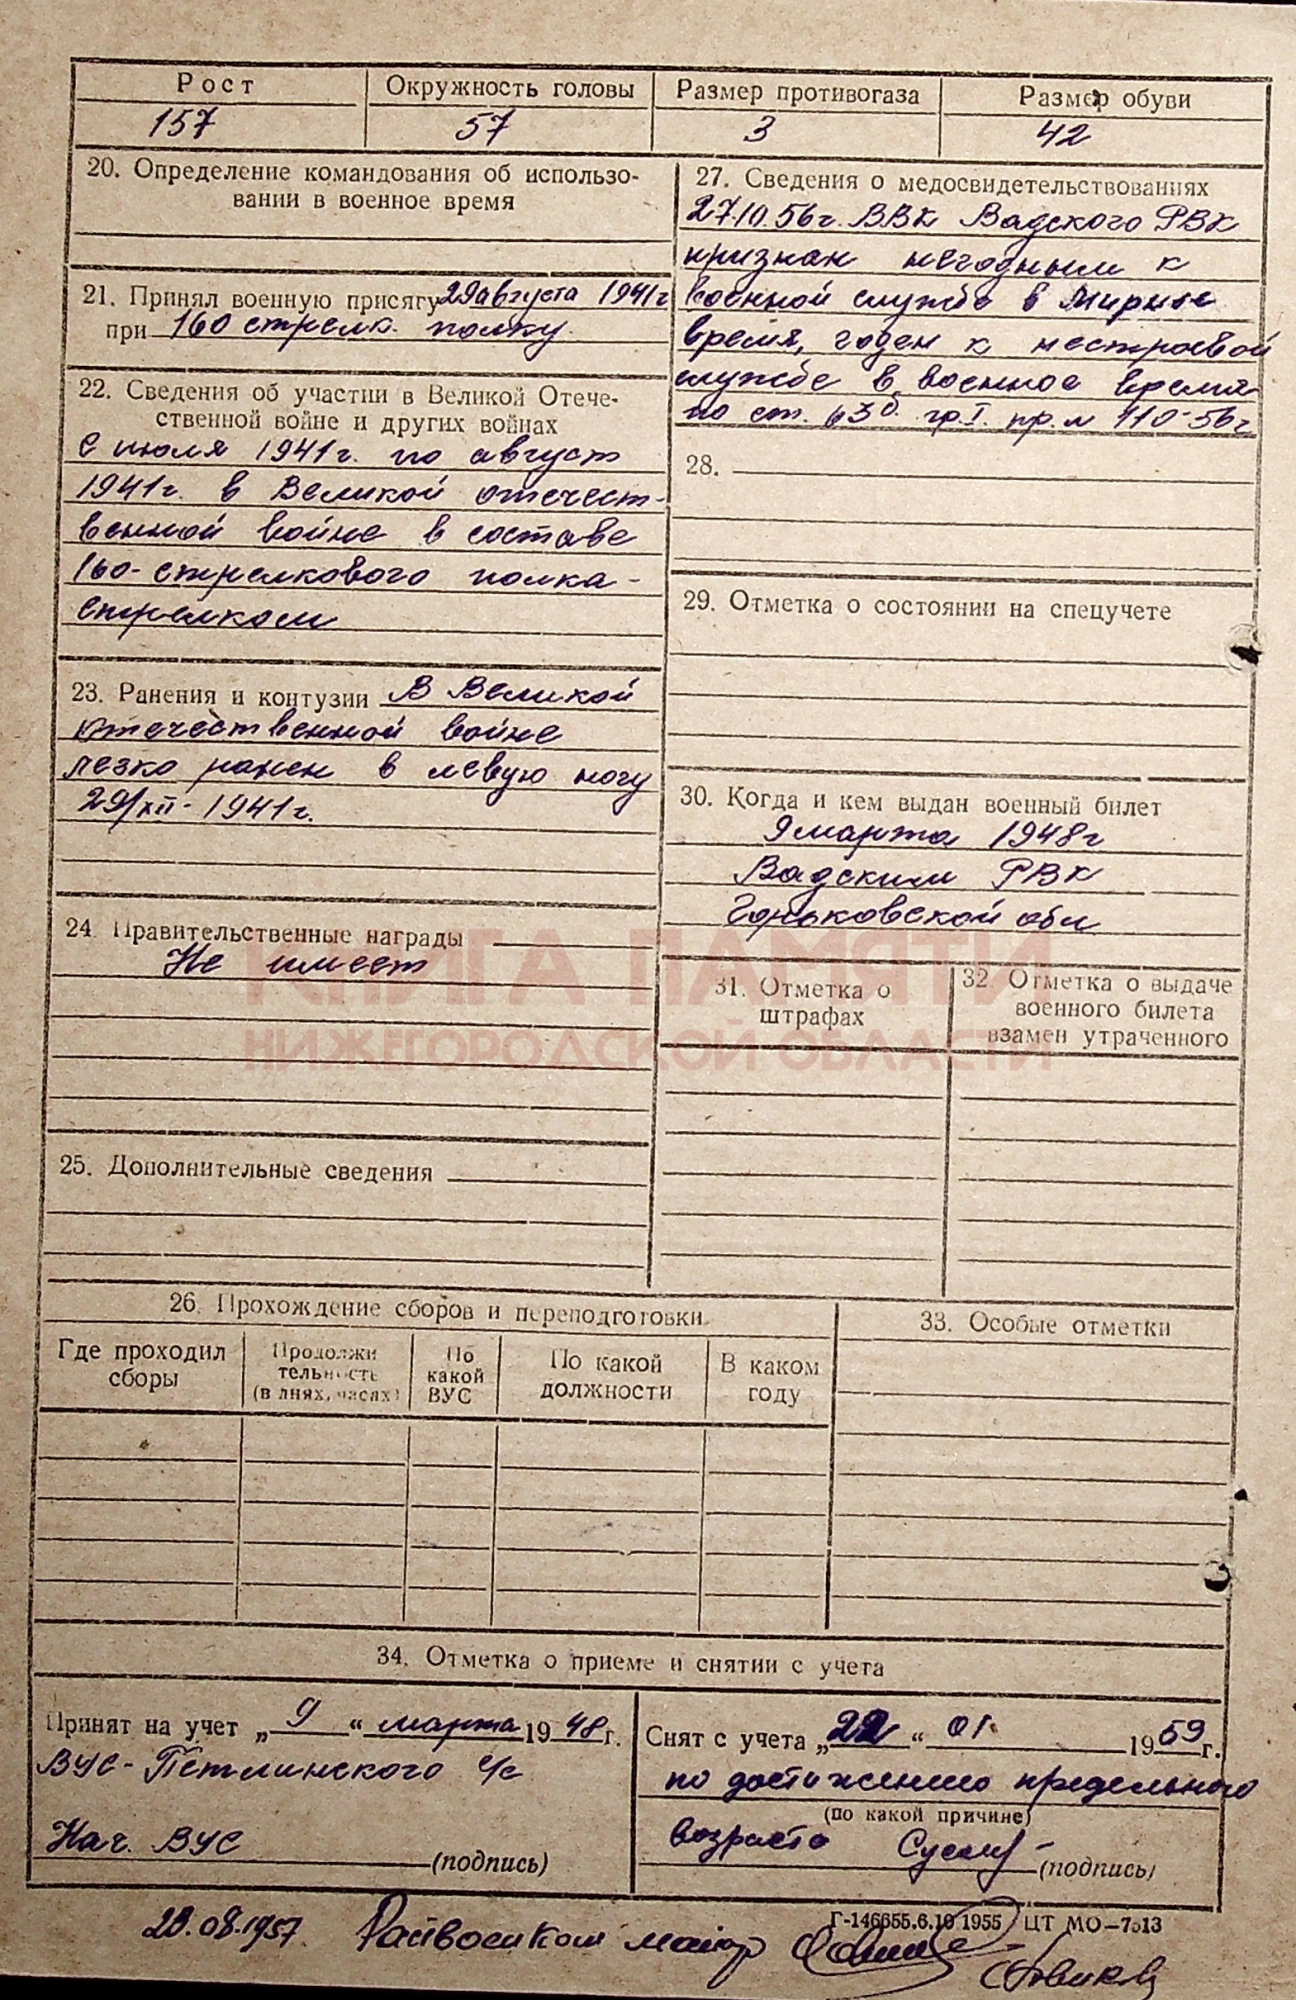 Рост
Окружность головы
Размер противогаза
Размер обуви
157
57
3
42
20. Определение командования об использо-
вании в военное время
21. Принял военную присягу 29 августа 1941 г
при 160 стрелк. полку.
22. Сведения об участии в Великой Отече-
ственной войне и других войнах
С июля 1941 г. по август
1941 г. в Великой отечест-
венной войне в составе
160-стрелкового полка-
стрелком
23. Ранения и контузии В Великой
отечественной войне
легко ранен в левую ногу
29/XII-1941 г.
24. Правительственные награды
Не имеет
25. Дополнительные сведения
27. Сведения о медосвидетельствованиях
27.10.56 г. ВВК Вадского РВК
признан негодным к
военной службе в мирное
время, годен к нестроевой
службе в военное время
по ст. 63б. гр. I. пр. № 110-56 г
28.
29. Отметка о состоянии на спецучете
30. Когда и кем выдан военный билет
9 марта 1948 г
Вадским РВК
Горьковской обл
31. Отметка о
штрафах
32. Отметка о выдаче
военного билета
взамен утраченного
КНИГА ПАМЯТИ
НИЖЕГОРОДСКОЙ ОБЛАСТИ
26. Прохождение сборов и переподготовки
Где проходил
сборы
Продолжи
тельность
(в днях, часах)
По
какой
ВУС
По какой
должности
В каком
году
33. Особые отметки
34. Отметка о приеме и снятии с учета
Принят на учет „ 9 “ марта 1948 г.
ВУС-Петлинского с/с
Нач. ВУС
(подпись)
Снят с учета „ 22 “ 01. 1959 г.
по достижению предельного
(по какой причине)
возраста
(подпись)
Г-146655.6.10 1955 ЦТ МО-7513
28.08.1957. Райвоенком майор